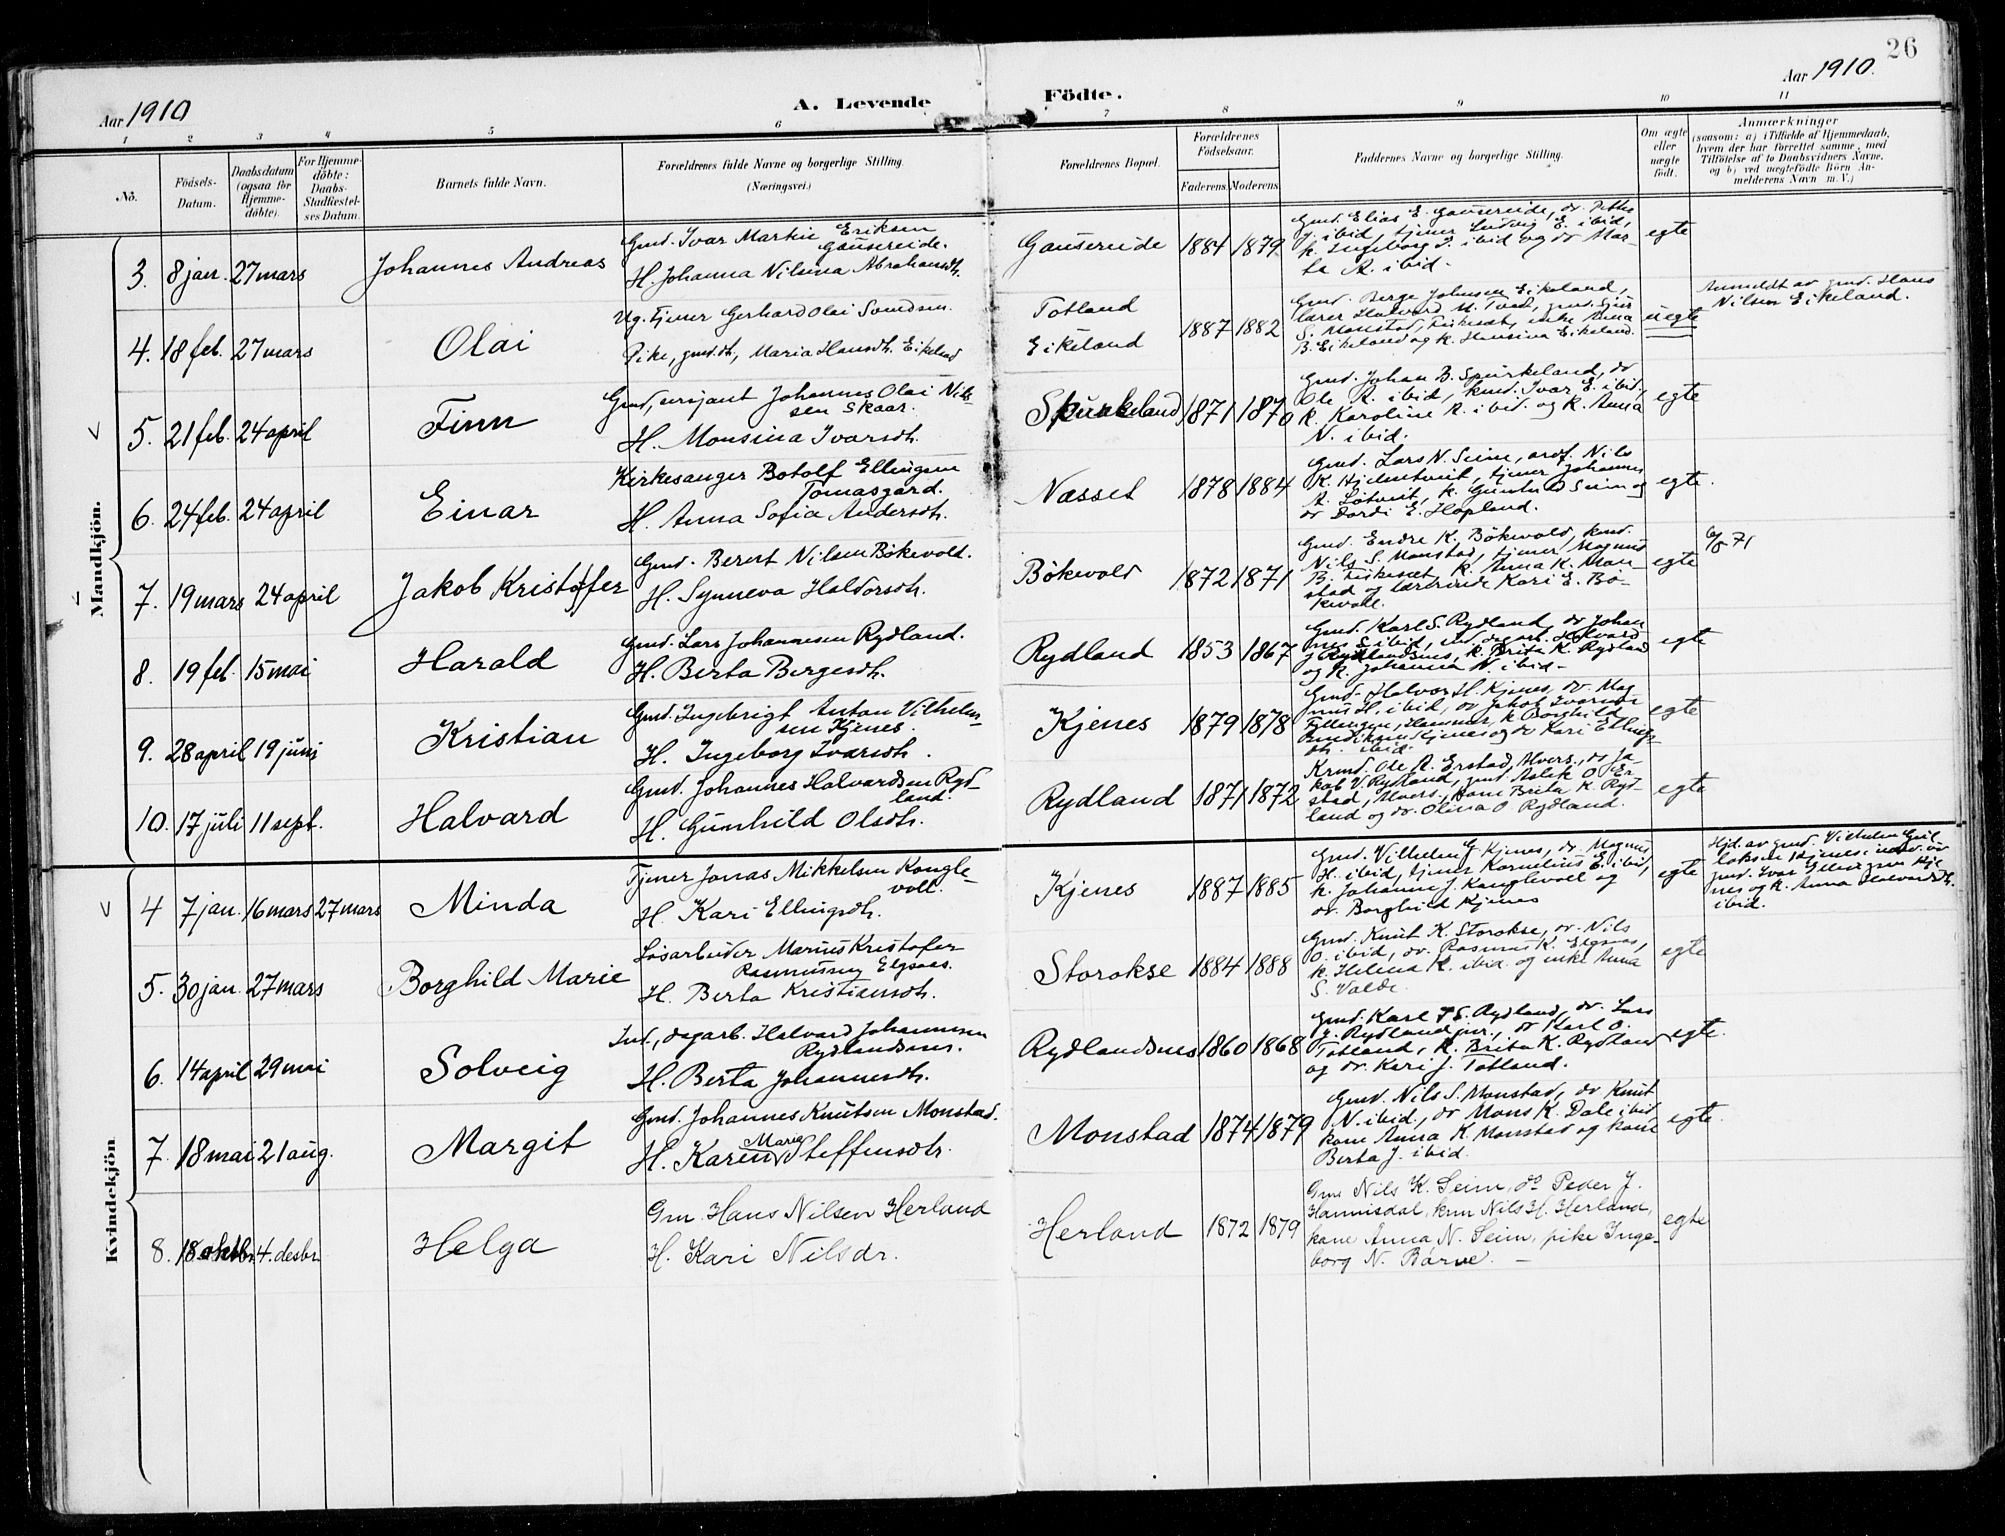 26
Aar 1910
A. Levende
Födte.
Aar 1910.
1 2 3 4 5 6 7 8 9 10 11
No.
Födsels-
Datum.
Daabsdatum
(ogsaa for
Hjemme-
döbte).
For Hjemme-
döbte:
Daabs-
Stadfæstel-
ses Datum.
Barnets fulde Navn.
Forældrenes fulde Navne og borgerlige Stilling
(Næringsvei.)
Forældrenes Bopæl.
Forældrenes
Födselsaar.
Faderens. Moderens.
Faddernes Navne og borgerlige Stilling.
Om ægte
eller
uægte
födt.
Anmærkninger
(saasom: a) i Tilfælde af Hjemmedaab,
hvem der har forrettet samme, med
Tilföielse af to Daabsvidners Navne,
og b) ved uægtefödte Börn An-
melderens Navn m. V.)
Mandkjön.
3. 8 jan. 27 mars
Johannes Andreas
Gmd. Ivar Martin Eriksen
Gausereide.
H. Johanna Nilsina Abrahamsdtr.
Gausereide 1884 1879
Gmd. Elias E. Gausereide, dr.
J. ibid, tjener Ludvig E. ibid,
k. Ingeborg J. ibid og dr Mar-
ta A. ibid.
egte
4. 18 feb. 27 mars
Olai
Ug. tjener Gerhard Olai
Pike, gmd.dtr, Maria Hansdtr. Eikeland
Totland
Eikeland
1887 1882
Gmd. Berge Johnsen Eikeland,
lærer Halvard M.
S. Monstad, Fiskeset, enke Anna
B. Eikeland og k. Hansina Eikeland.
uegte
Anmeldt av gmd. Hans
Nilsen Eikeland.
5. 21 feb. 24 april
Finn
Gmd, sersjant Johannes Olai Nil-
sen Skaar.
H. Monsina Ivarsdtr.
Spurkeland 1871 1870
Gmd. Johan B. Spurkeland, dr
Ole A. ibid, kmd. Ivar E. ibid,
k. Karoline A. ibid. og k. Anna
N. ibid.
egte
6. 24 feb. 24 april
Einar
Kirkesanger Botolf Ellingsen
Tomasgard.
H. Anna Sofia Andersdtr.
Næsset 1878 1884
Gmd. Lars N. Seim, Nils
K. Hjelmtveit, tjener Johannes
A. Lötveit, k. Gunhild Seim og
dr Dordi E. Hopland.
egte.
7. 19 mars 24 april
Jakob Kristofer
Gmd. Berent Nilsen Bökevold.
H. Synneva Haldorsdtr.
Bökevold 1872 1871
Gmd. Endre K. Bökevold, kmd.
Nils S. Monstad, tjener Magnus
B. Fiskeset, k. Anna K. Mon-
stad og lærerinde Kari E. Bö-
kevold.
egte
6/8 71
8. 19 feb. 15 mai
Harald
Gmd. Lars Johannesen Rydland.
H. Berta Bergesdtr.
Rydland 1853 1867
Gmd. Karl S. Rydland, dr Johan
nes S ibid, ind. dagarb. Halvard
J Rydlandsnes, k. Brita K. Rydland
og k. Johanna N. ibid.
egte
9. 28 april 19 juni
Kristian
Gmd. Ingebrigt Anton Vilhelm-
sen Kjenes.
H. Ingeborg Ivarsdtr.
Kjenes 1879 1878
Gmd. Halvor H. Kjenes, dr. Mag
nus H. ibid, dr Jakob
Hammer, k Borghild
Kjenes og dr Kari Ellings-
dtr. ibid.
egte
10. 17 juli 11 sept.
Halvard
Gmd. Johannes Halvardsen Ryd-
land.
H. Gunhild Olsdtr.
Rydland 1871 1872
Kmd. Ole A. Erstad, Alvers., dr Ja-
kob V. Rydland, gmd Aslak O Er-
stad, Alvers., kone Brita K. Ryd-
land og dr. Olina O. Rydland.
egte
Kvindekjön
4 7 jan. 16 mars 27 mars
Minda
Tjener Jonas Mikkelsen Kongle-
voll.
H. Kari Ellingsdtr.
Kjenes 1887 1885
Gmd. Vilhelm G. Kjenes, dr. Magnus
H. ibid, tjener Kornelius E. ibid,
k. Johanne J. Konglevoll og
dr. Borghild Kjenes
egte
Hjd. av gmd. Vilhelm
Kjenes i nærv. av
gmd. Ivar Ellingsen Kje
nes og k. Anna Halvardsdtr.
ibid.
5. 30 jan. 27 mars
Borghild Marie
Lösarbeider Marius Kristofer
Rasmussen Elgsaas.
H. Berta Kristiansdtr.
Storokse 1884 1888
Gmd. Knut K. Storokse, dr. Nils
O. ibid, dr. Rasmus K. Elgsaas,
k. Helena K. ibid. og enke Anna
S. Valde.
egte
6. 14 april 29 mai
Solveig
Ind., dagarb. Halvard Johannesen
Rydlandsnes.
H. Berta Johannesdtr.
Rydlandsnes 1860 1868
Gmd. Karl S. Rydland, dr. Lars
J. Rydland jnr., dr Karl O.
Totland, k. Brita K. Rydland
og dr. Kari J. Totland.
egte.
7. 18 mai 21 aug.
Margit
Gmd. Johannes Knutsen Monstad.
Marie
H. Karen Steffensdtr.
Monstad 1874 1879
Gmd. Nils S. Monstad, dr Knut
N. ibid, dr Mons K. Dale ibid,
kone Anna K. Monstad og kone
Berta J. ibid.
egte.
8. 18 oktbr 4. desbr.
Helga
Gm. Hans Nilsen Herland
H. Kari Nilsdr.
Herland 1872 1879
Gm Nils K. Seim, do Peder J.
Hannisdal, km Nils H. Herland,
kone Anna N. Seim, pike Inge-
borg N. Börve.
egte